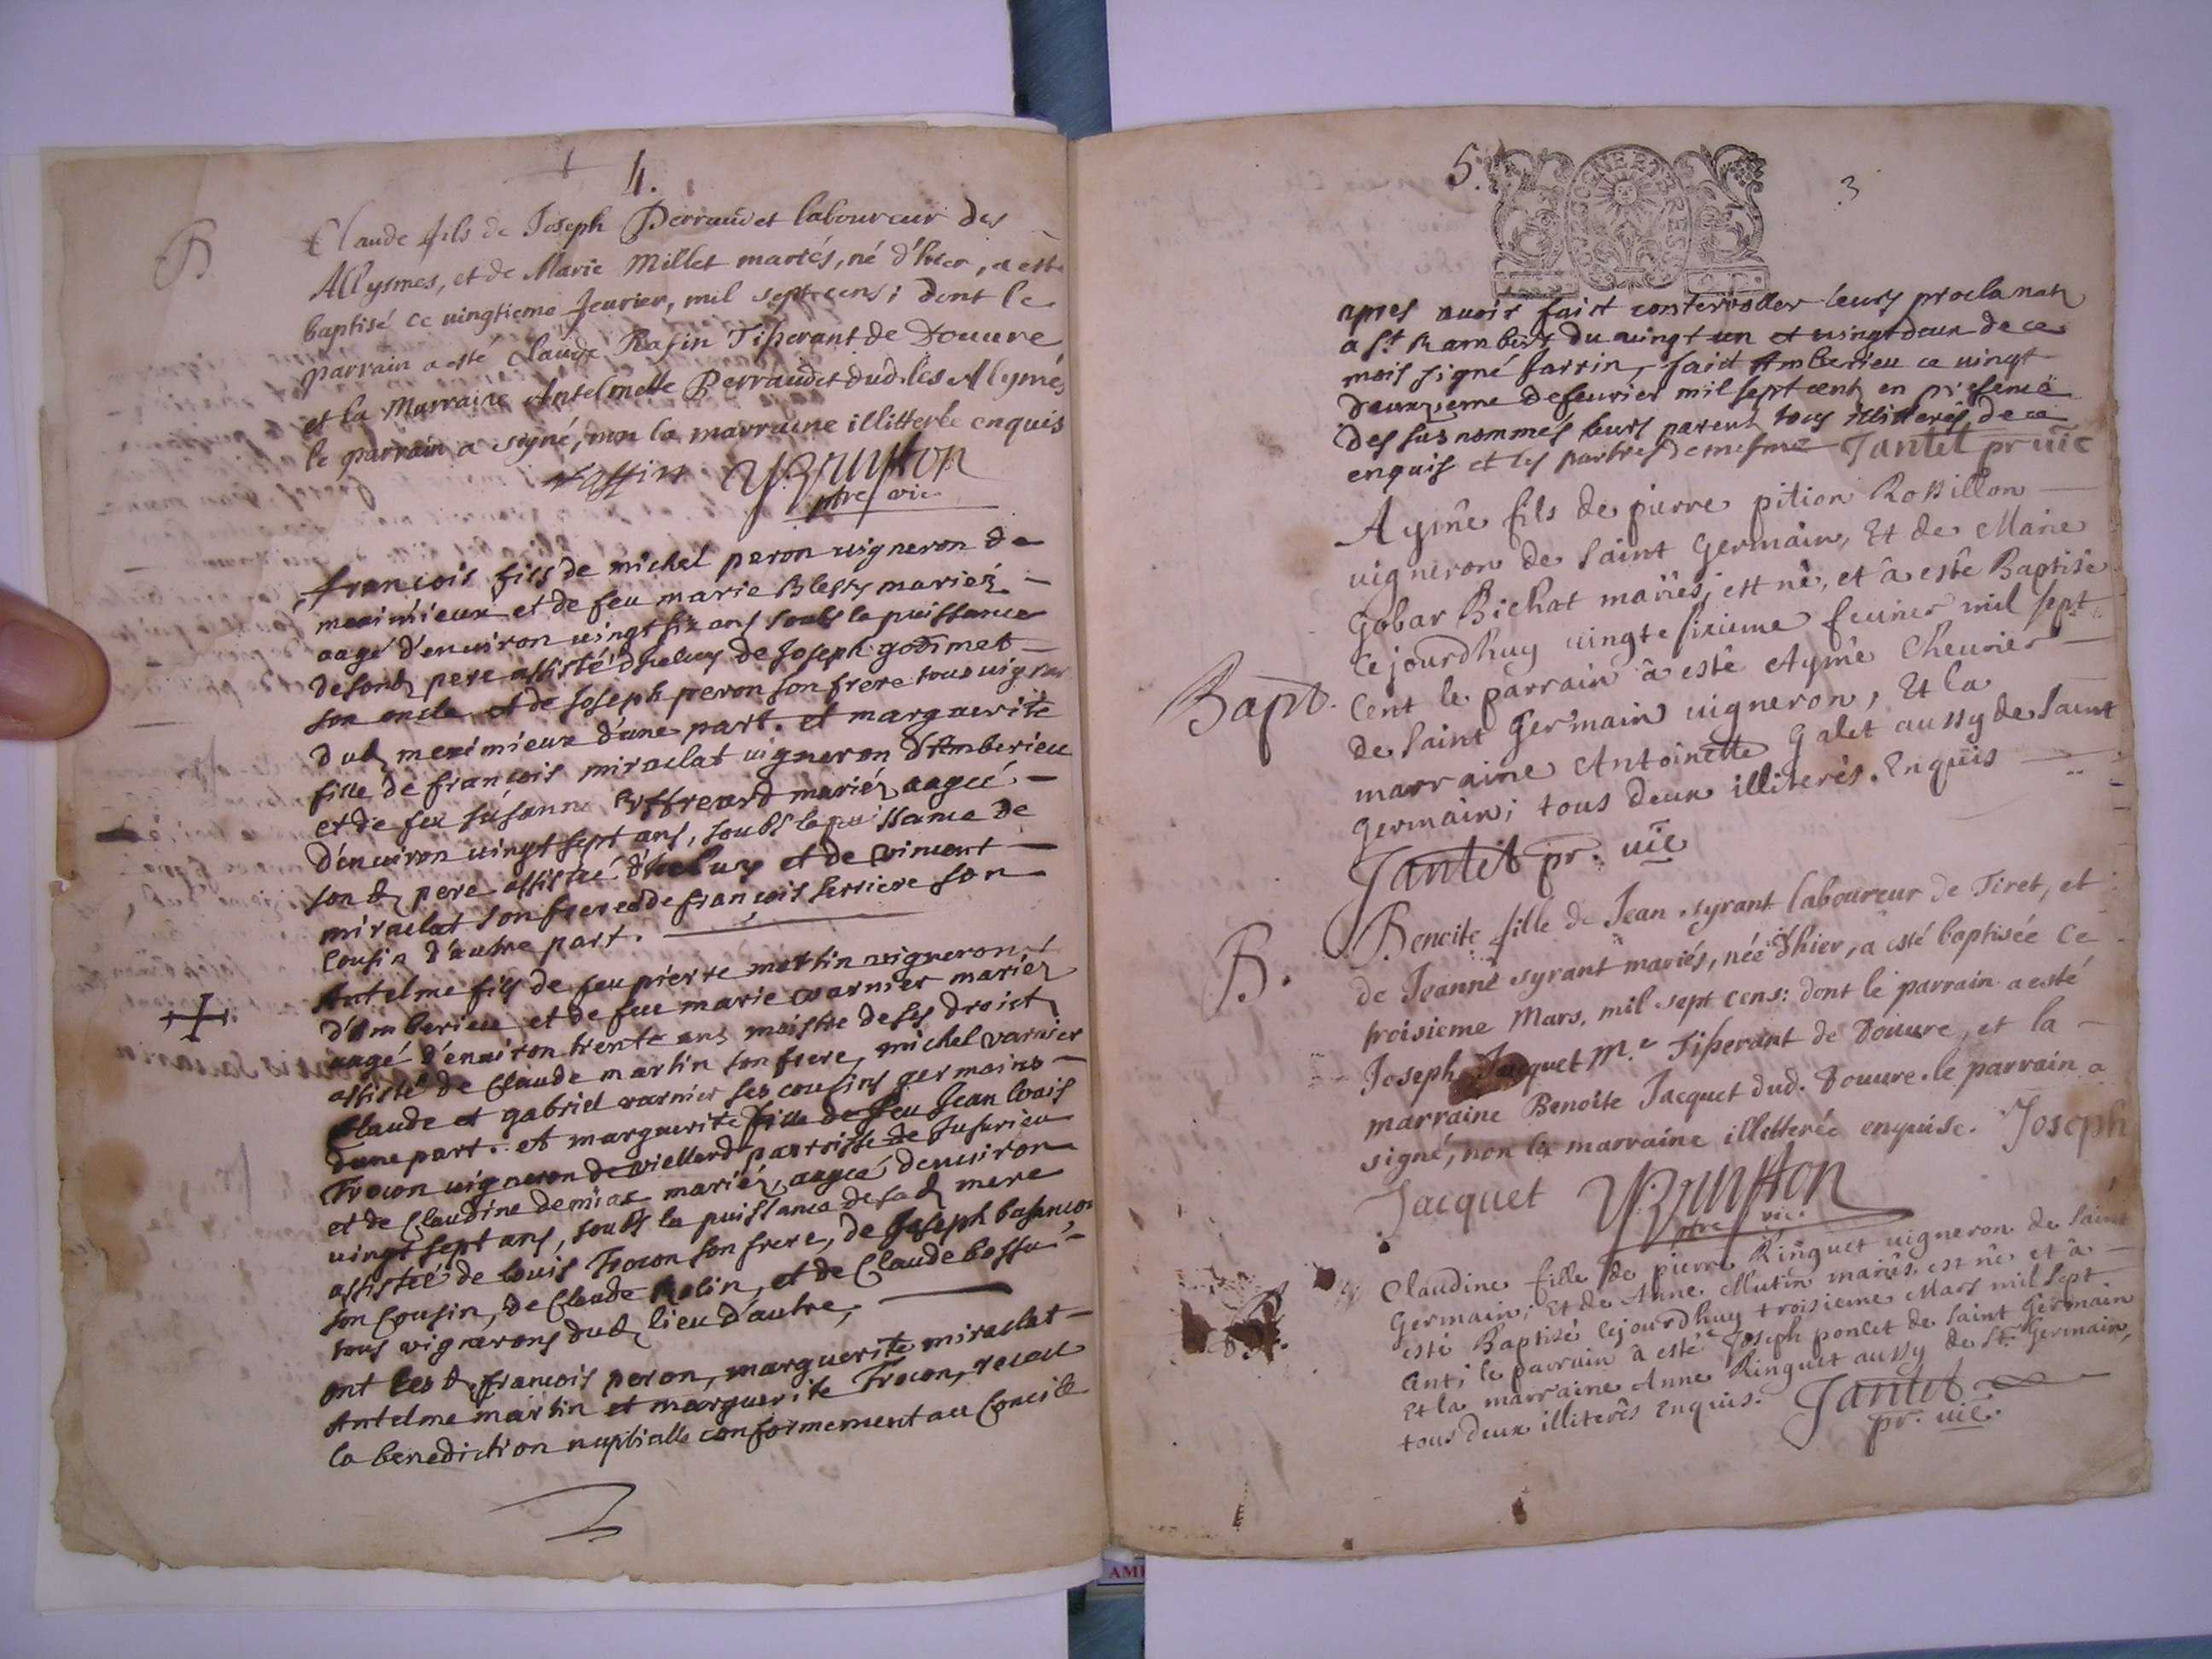 4.
B
Claude fils de Joseph Perraudet laboureur des
Allysmes, et de Marie Millet mariés, né d'hier, a esté
baptisé ce vingtieme feurier, mil sept cens; dont le
parrain a esté Claude Rafin Tisserant de Douure,
et la Marraine Antelmette Perraudet dud. les Allymes
le parrain a signé, non la marraine illitterée enquis
Raffin VBrunton
ptre vic
francois fils de michel peron uigneron de
meximieux et de feu marie Blesty mariez
aagé d'enuiron uingt six ans soubs la puissance
desond pere assisté d'iceluy de Joseph godimet
son oncle et de Joseph peron son frere tous uignerons
dud meximieux d'une part. et marguerite
fille de françois miraclat uigneron d'Amberieu
et de feu susanne Effreard mariez aagée
d'enuiron uingt sept ans, soubs la puissance de
sond pere assistée d'iceluy et de vincent
miraclat son frere et de françois serriere son
cousin d'autre part.
Antelme fils de feu pierre martin uigneron
d'Amberieu et de feue marie varnier mariez
aagé d'enuiron trente ans maistre de ses droict
assisté de Claude martin son frere, michel varnier
Claude et gabriel varnier ses cousins germains
d'une part. et marguerite fille de feu Jean louis
Trocon uigneron de viellard parroisse de Jusurieu
et de Claudine demiae mariez, aagée denuiron
uingt sept ans, soubs la puissance de sad mere
assistée de louis Trocon son frere, de Joseph basancon
son Cousin, de Claude Rolin, et de Claude bossu
tous vignerons dud lieu d'autre,
ont les d. francois peron, marguerite miraclat
Antelme martin et marguerite Trocon, receu
la benediction nuptialle conformement au Concile
5.
3
GENER
apres auoir faict conterroller leurs proclamat
a St Rambert du uingt un et uingt deux de ce
mois signé sarrin, faict Amberieu ce uingt
deuxieme defeurier mil sept cent en presence
des sus nommés leurs parents tous illiterés de ce
enquis et les parties demesme Jantet pr uic
Bapt.
Aymé fils de pierre pition Rossillon
uigneron de Saint Germain, Et de Marie
Gobar Bichat mariés, est né, et â esté Baptisé
Cejourdhuy uingte sixieme feurier mil sept
Cent le parrain â esté Aymé Cheurier
de Saint Germain uigneron, Et la
marraine Antoinette Galet aussy de Saint
Germain; tous deux illiterés. Enquis
Jantet pr. uic
B.
Benoite fille de Jean syrant laboureur de Tiret, et
de Jeanne syrant mariés, née d'hier, a esté baptisée ce
troisieme Mars, mil sept cens: dont le parrain a esté
Joseph Jacquet M.e Tisserant de Douure, et la
marraine Benoite Jacquet dud. Douure. le parrain a
signé, non la marraine illetterée enquise. Joseph
Jacquet VBrunton
ptre vic.
Claudine fille de pierre Ringuet uigneron de Saint
Germain; Et de Anne Mutin mariés, est né et â
esté Baptisé Cejourdhuy troisieme Mars mil sept
Cent; le parrain â esté Joseph poncet de Saint Germain
Et la marraine Anne Ringuet aussy de St. Germain,
tous deux illiterés Enquis. Jantet
pr. uic.